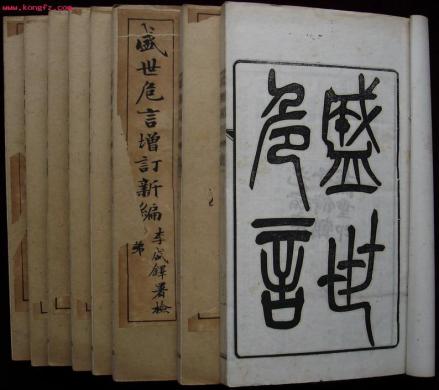 www.kongfz.com
盛世危言增訂新編
李盛鐸署檢
盛世
危言